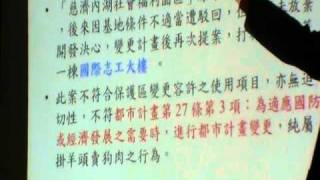 「慈濟內湖社會福利園區」
後來因基地條件不適當遭駁回，
開發決心，變更計畫後再次提案，打
一棟國際志工大樓。
此案不符合保護區變更容許之使用項目，亦無迫
切性，不符都市計畫第27條第3項：為適應國防
或經濟發展之需要時，進行都市計畫變更，純屬
掛羊頭賣狗肉之行為。